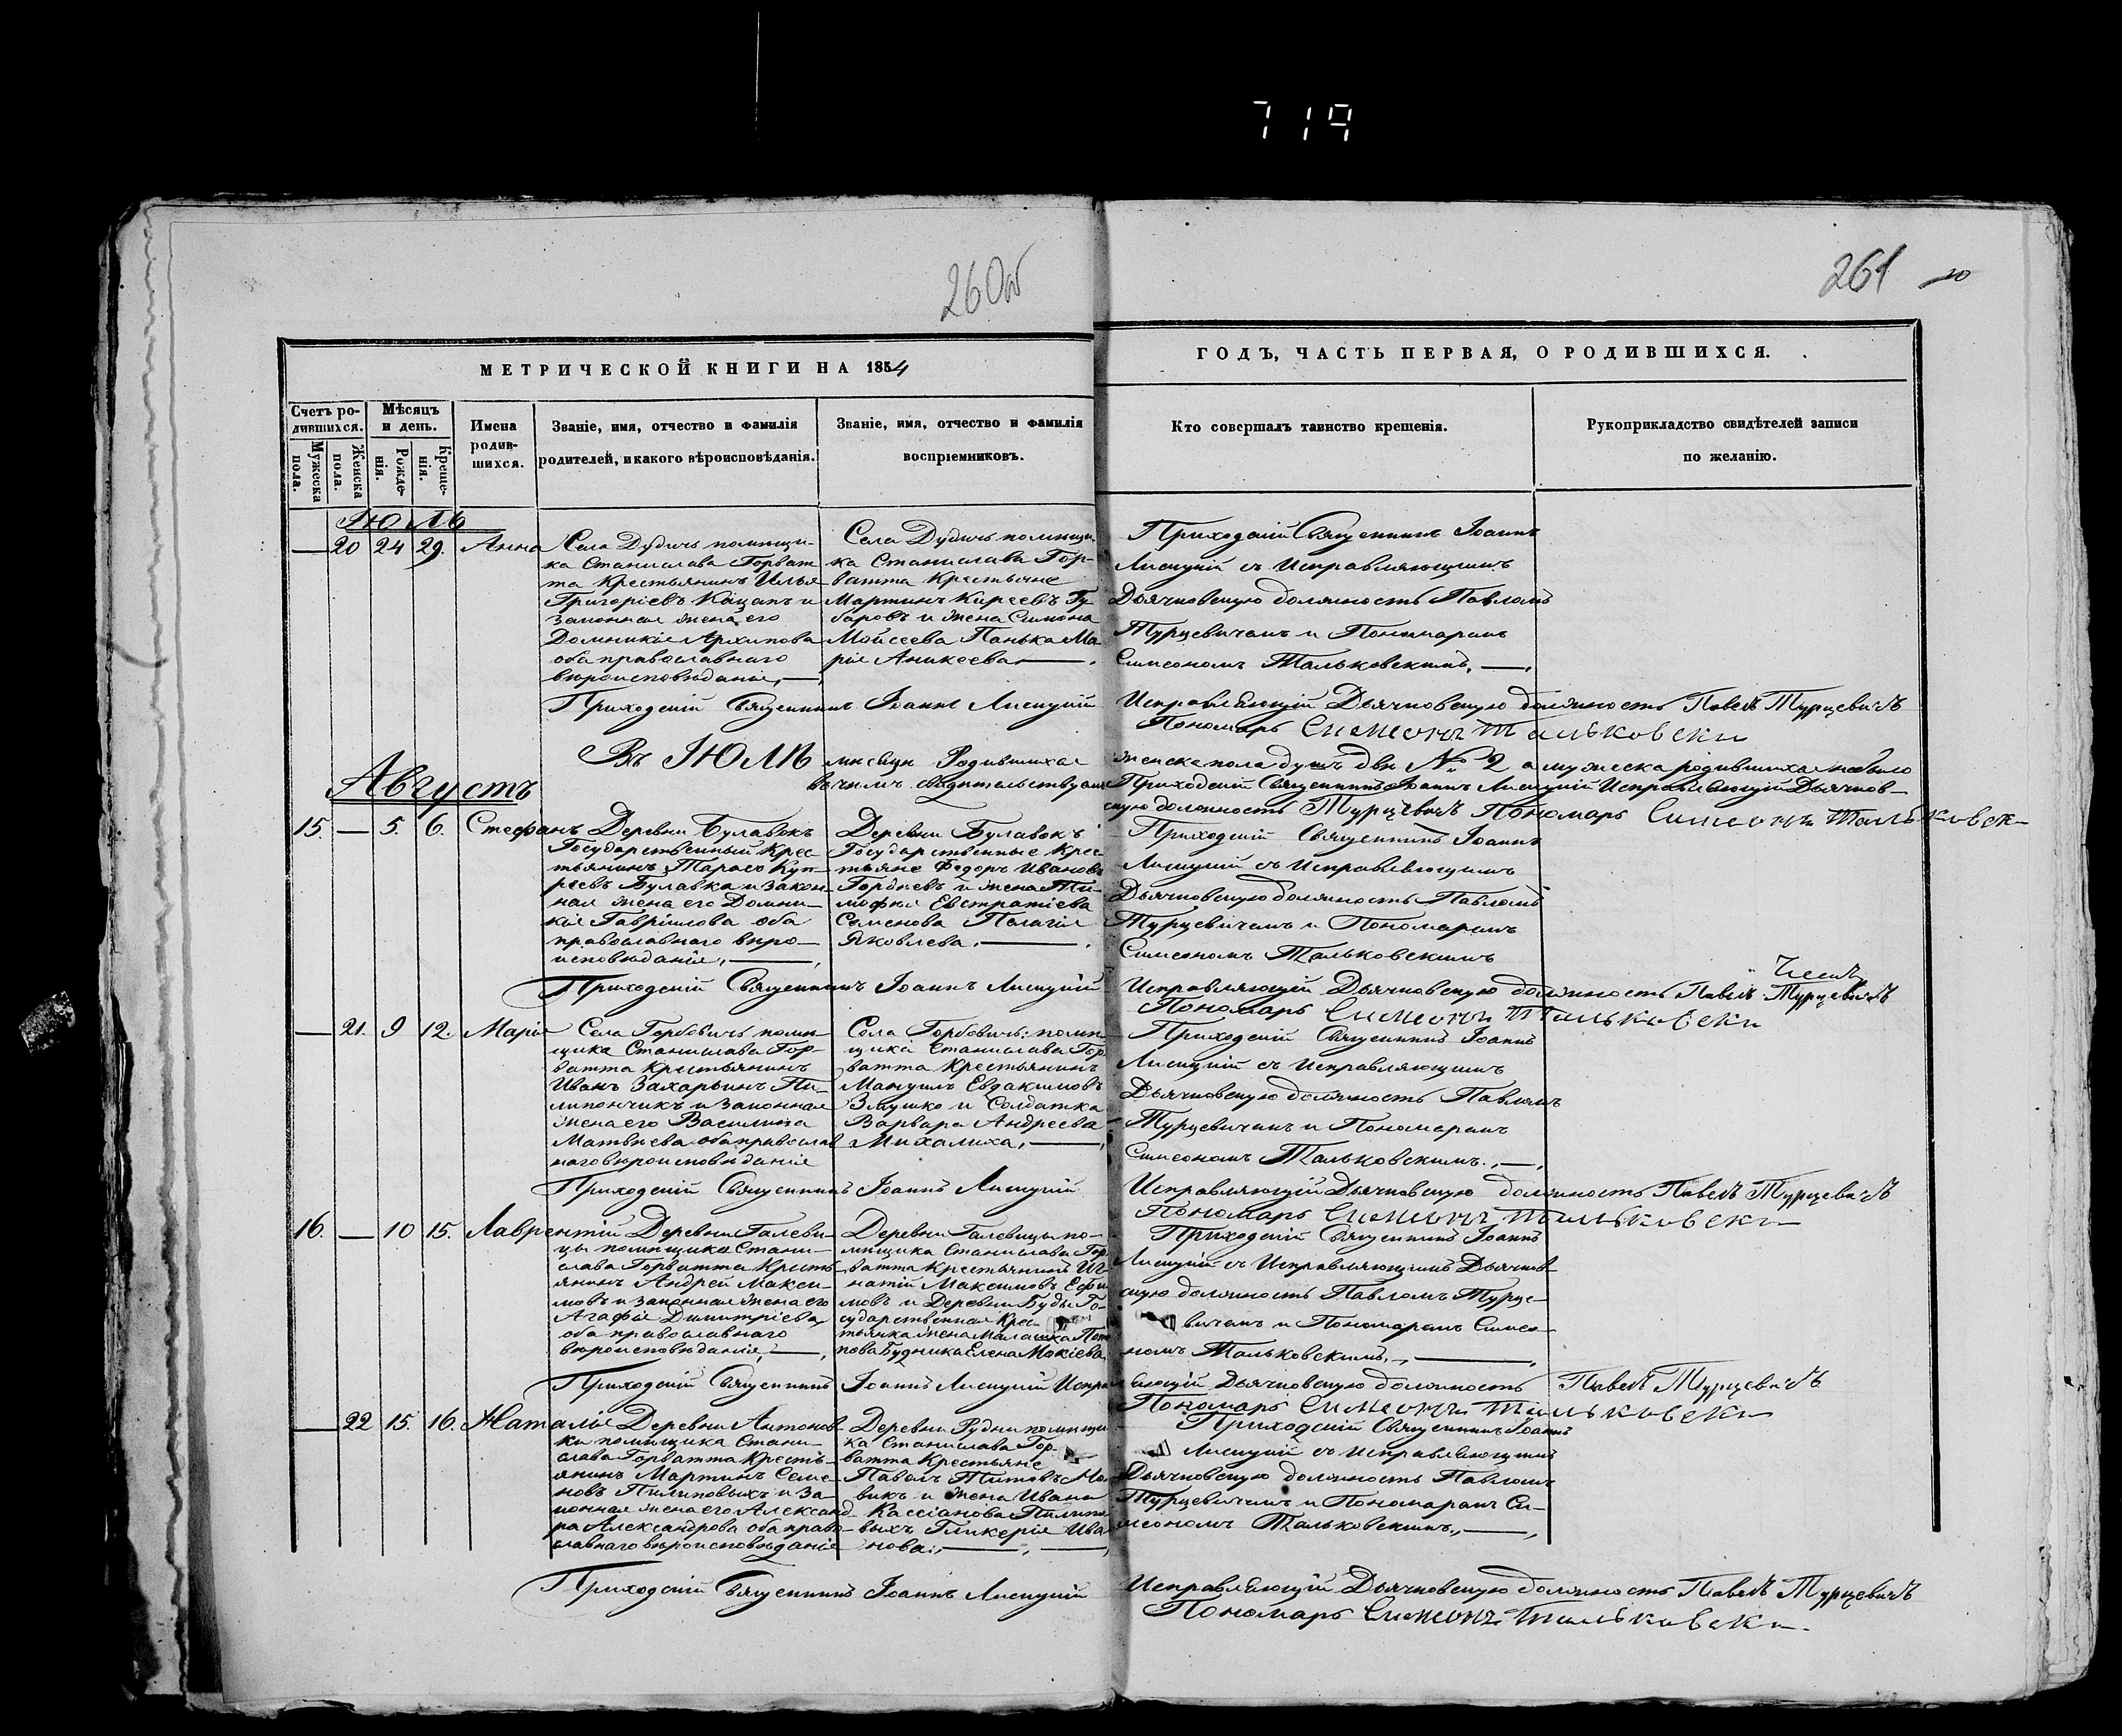 719
260об
261
МЕТРИЧЕСКОЙ КНИГИ НА 1854
ГОДЪ, ЧАСТЬ ПЕРВАЯ, О РОДИВШИХСЯ.
Счетъ родившихся.
Мужеска пола.
Женска пола.
Мѣсяцъ и день.
Рожденія.
Крещенія.
Имена родившихся.
Званіе, имя, отчество и фамилія
родителей, и какого вѣроисповѣданія.
Званіе, имя, отчество и фамилія
воспріемниковъ.
Кто совершалъ таинство крещенія.
Рукоприкладство свидѣтелей записи
по желанію.
Июль
— 20 24 29. Анна
Села Дудичъ помѣщи-
ка Станислава Горват
та Крестьянинъ Илья
Григоріевъ Кацапъ и
законная жена его
Домникія Архипова
оба православнаго
вѣроисповѣданія,—
Села Дудичъ помѣщи
ка Станислава Гор-
ватта Крестьяне
Мартинъ Киреевъ Гу-
баровъ и жена Симона
Мойсеева Панька Ма
рія Аникеева,—.
Приходскій Священникъ Іоаннъ
Лисицкій съ Исправляющимъ
Дьячковскую должность Павломъ
Турцевичемъ и Пономаремъ
Симеономъ Тальковскимъ,—.
Приходскій Священникъ Іоаннъ Лисицкій Исправляющій Дьячковскую должность Павелъ Турцевичъ
Пономарь Симеонъ Тальковски
Въ Июлѣ мѣсяцѣ Родившихся женска пола душъ двѣ № 2 а мужеска родившихся небыло
въ чемъ свидѣтельствуемъ Приходскій Священникъ Іоаннъ Лисицкій Исправляющій Дьячков-
скую должность Турцевичъ Пономарь Симеонъ Тальковски
Августъ
15. — 5. 6. Стефанъ
Деревни Булавокъ
Государственный Крес-
тьянинъ Тарасъ Куп-
реевъ Булавка и закон-
ная жена его Домни-
кія Гавріилова оба
православнаго вѣро-
исповѣданія,—,
Деревни Булавокъ
Государственные Крес
тьяне Федоръ Ивановъ
Гордѣевъ и жена Ти-
мофея Евстратіева
Семенова Пелагія
Яковлева.—.
Приходскій Священникъ Іоаннъ
Лисицкій съ Исправляющимъ
Дьячковскую должность Павломъ
Турцевичемъ и Пономаремъ
Симеономъ Тальковскимъ
Приходскій Священникъ Іоаннъ Лисицкій Исправляющій Дьячковскую должность Павелъ Турцевичъ
Пономарь Симеонъ Тальковски
— 21. 9 12. Марія
Села Горбовичъ помѣ-
щика Станислава Гор-
ватта Крестьянинъ
Иванъ Захарьинъ Пи-
липончикъ и законная
жена его Василиса
Матвѣева оба православ
наго вѣроисповѣданія
Села Горбовичъ помѣ-
щика Станислава Гор
ватта Крестьянинъ
Мануилъ Евдакимовъ
Змушко и Солдатка
Варвара Андреева
Михалиха,—,
Приходскій Священникъ Іоаннъ
Лисицкій съ Исправляющимъ
Дьячковскую должность Павломъ
Турцевичемъ и Пономаремъ
Симеономъ Тальковскимъ.,—,
Приходскій Священникъ Іоаннъ Лисицкій Исправляющій Дьячковскую должность Павелъ Турцевичъ
Пономарь Симеонъ Тальковски
16. — 10 15. Лаврентій
Деревни Галеви-
цы помѣщика Стани-
слава Горватта Кресть-
янинъ Андрей Макси-
мовъ и законная жена его
Агафія Димитріева
оба православнаго
вѣроисповѣданія,—,
Деревни Галевицы по-
мѣщика Станислава Гор
ватта Крестьянинъ Иг-
натій Максимовъ Ефи
мовъ и Деревни Буды Го-
сударственная Крес-
тьянка жена Малашка Пота
пова Будника Елена Мокіева
Приходскій Священникъ Іоаннъ
Лисицкій съ Исправляющимъ Дьячков-
скую должность Павломъ Турце-
вичемъ и Пономаремъ Симео-
номъ Тальковскимъ,—,
Приходскій Священникъ Іоаннъ Лисицкій Исправляющій Дьячковскую должность Павелъ Турцевичъ
Пономарь Симеонъ Тальковски
— 22 15. 16. Наталія
Деревни Антонов-
ки помѣщика Стани-
слава Горватта Кресть-
янинъ Мартинъ Семе-
новъ Пилиповыхъ и за-
конная жена его Александ
ра Александрова оба право-
славнаго вѣроисповѣданія
Деревни Рудни помѣщи
ка Станислава Гор-
ватта Крестьяне
Павелъ Титовъ Но-
викъ и жена Ивана
Кассіанова Пилипо
выхъ Гликерія Ива
нова.,—,—,
Приходскій Священникъ Іоаннъ
Лисицкій съ Исправляющимъ
Дьячковскую должность Павломъ
Турцевичемъ и Пономаремъ Си-
меономъ Тальковскимъ.,—,
Приходскій Священникъ Іоаннъ Лисицкій Исправляющій Дьячковскую должность Павелъ Турцевичъ
Пономарь Симеонъ Тальковски